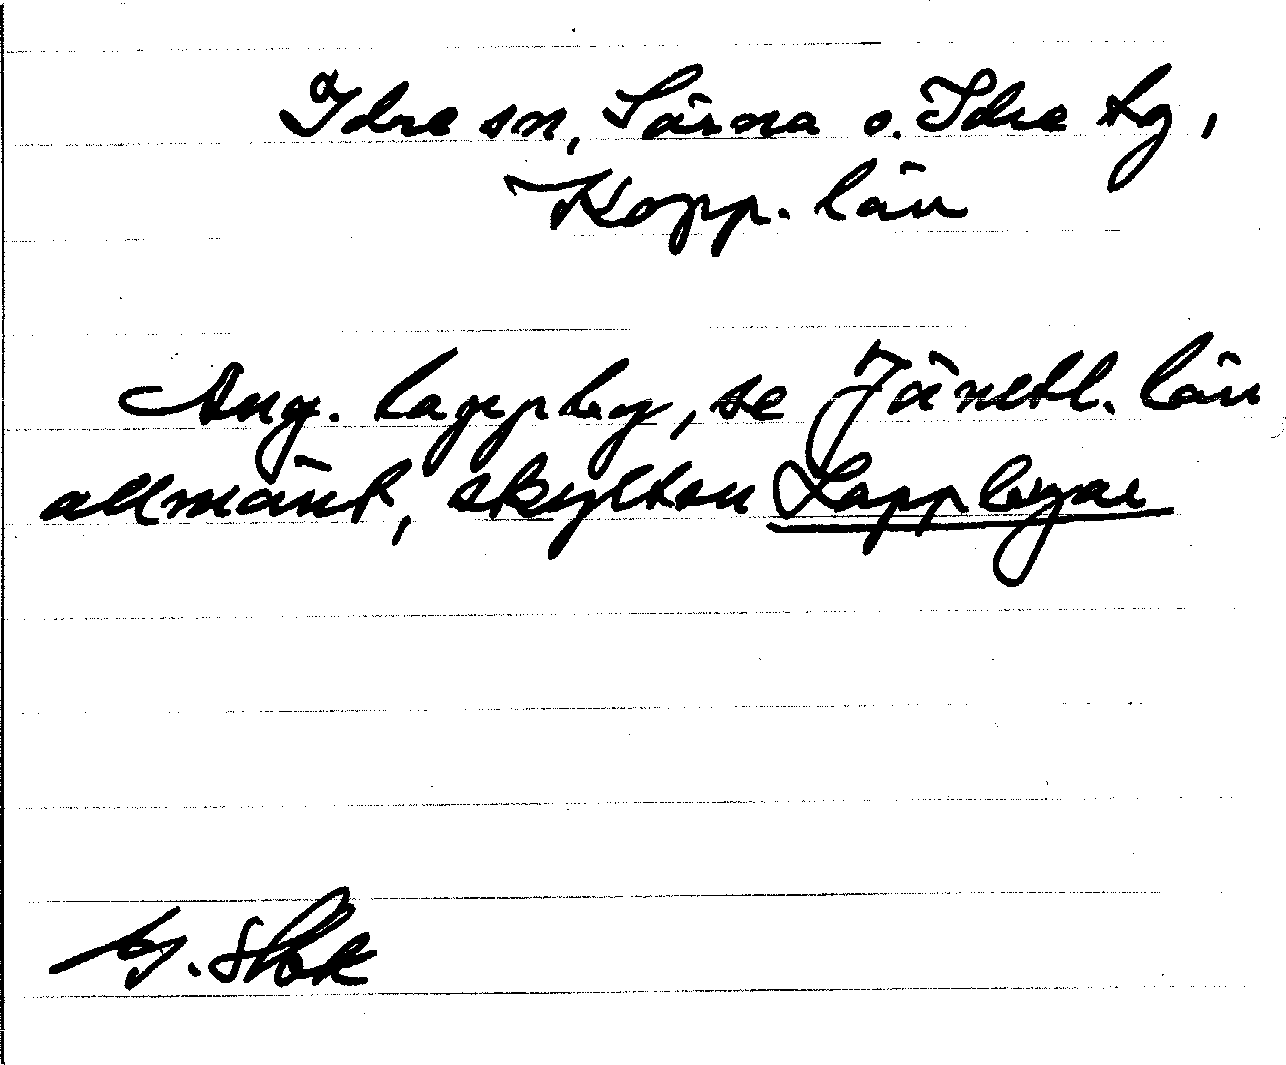 Idre sn, Särna o. Idre tg,
Kopp. län
Ang. lappby, se Jämtl. län
allmänt, skylten Lappbyar